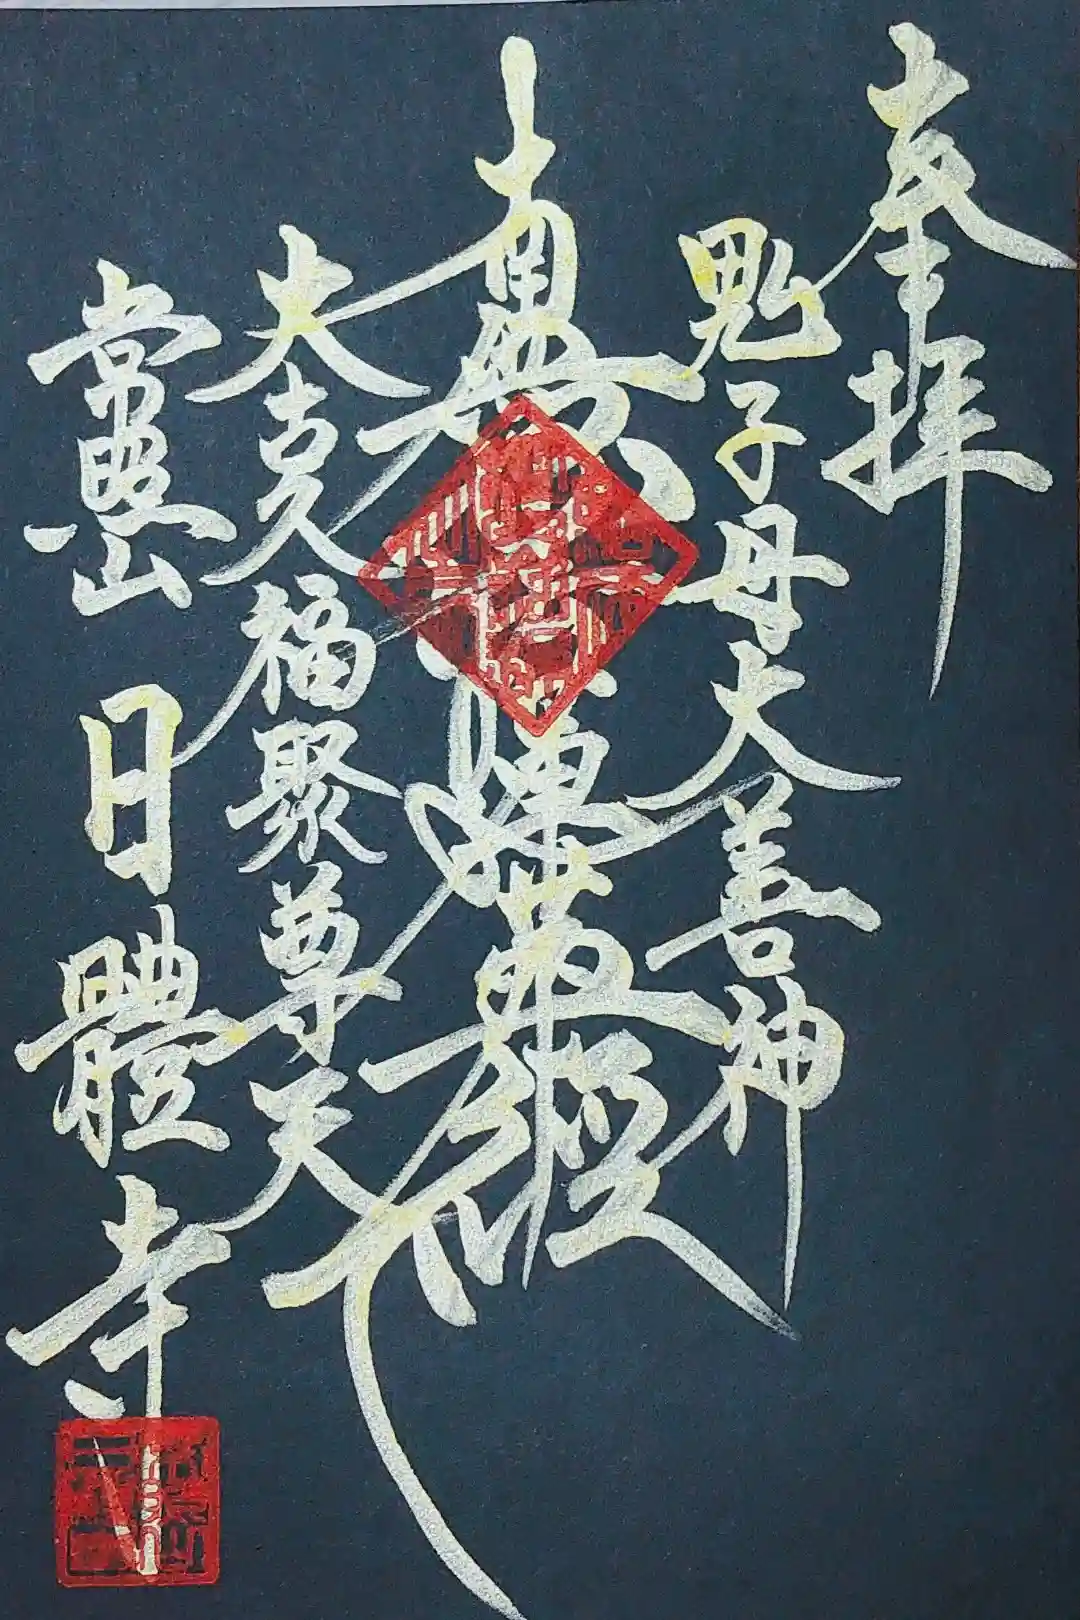 奉拝
鬼子母大善神
南無妙法蓮華經
大古久福聚尊天
常照山 日體寺